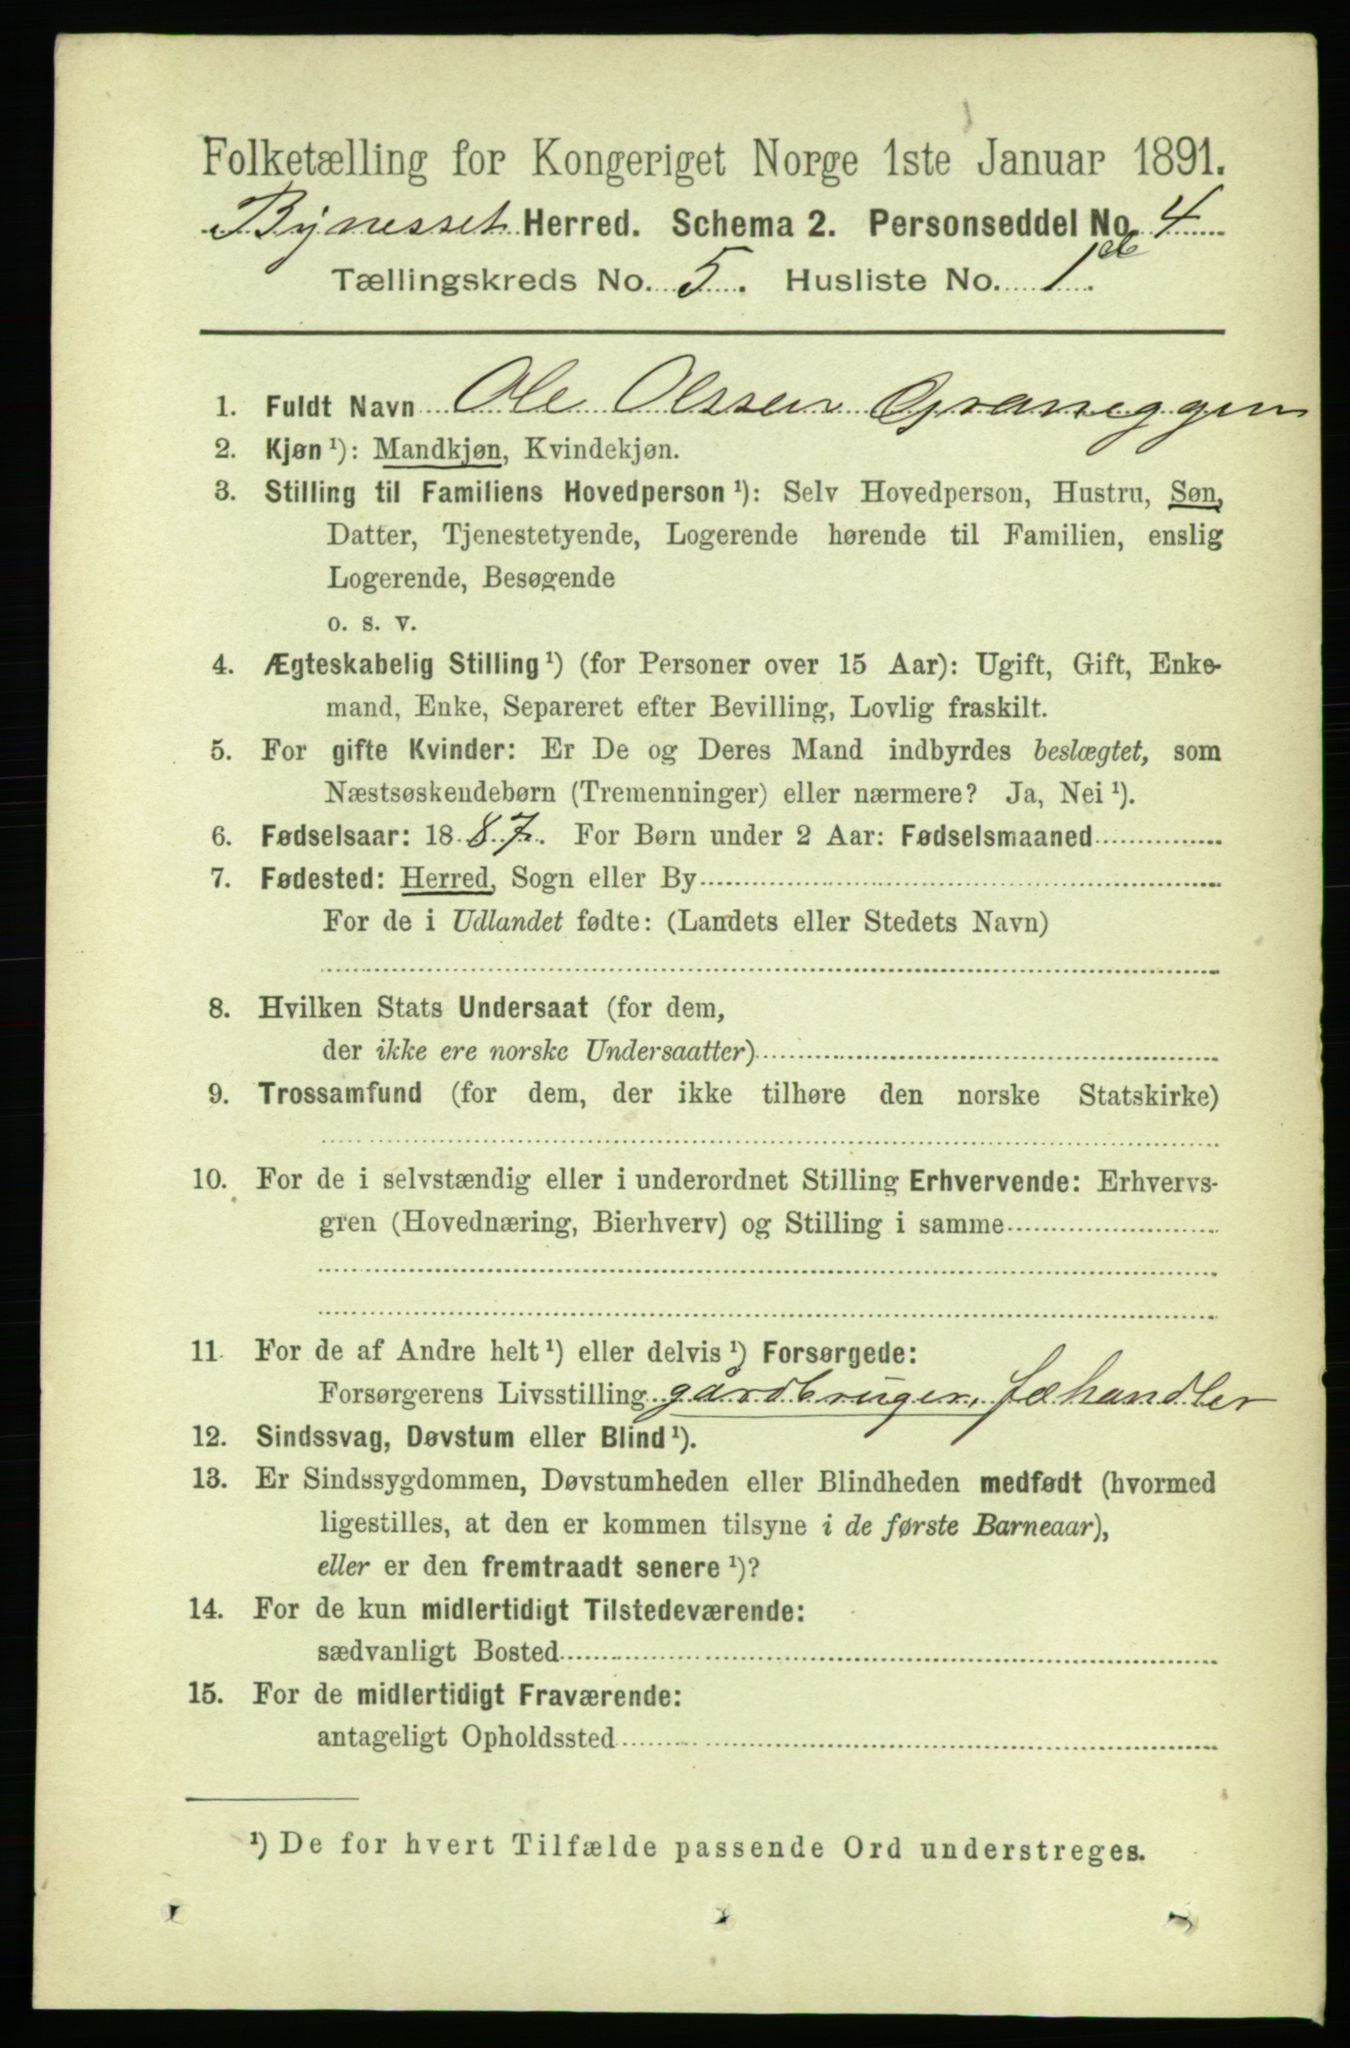 Folketælling for Kongeriget Norge 1ste Januar 1891.
Bynesset Herred. Schema 2. Personseddel No. 4
Tællingskreds No. 5. Husliste No. 1
1. Fuldt Navn Ole Olssen Graneggen
2. Kjøn ¹): Mandkjøn, Kvindekjøn.
3. Stilling til Familiens Hovedperson ¹): Selv Hovedperson, Hustru, Søn,
Datter, Tjenestetyende, Logerende hørende til Familien, enslig
Logerende, Besøgende
o. s. v.
4. Ægteskabelig Stilling ¹) (for Personer over 15 Aar): Ugift, Gift, Enke-
mand, Enke, Separeret efter Bevilling, Lovlig fraskilt.
5. For gifte Kvinder: Er De og Deres Mand indbyrdes beslægtet, som
Næstsøskendebørn (Tremenninger) eller nærmere? Ja, Nei ¹).
6. Fødselsaar: 1887. For Børn under 2 Aar: Fødselsmaaned
7. Fødested: Herred, Sogn eller By
For de i Udlandet fødte: (Landets eller Stedets Navn)
8. Hvilken Stats Undersaat (for dem,
der ikke ere norske Undersaatter)
9. Trossamfund (for dem, der ikke tilhøre den norske Statskirke)
10. For de i selvstændig eller i underordnet Stilling Erhvervende: Erhvervs-
gren (Hovednæring, Bierhverv) og Stilling i samme
11. For de af Andre helt ¹) eller delvis ¹) Forsørgede:
Forsørgerens Livsstilling gårdbruger, fæhandler
12. Sindssvag, Døvstum eller Blind ¹).
13. Er Sindssygdommen, Døvstumheden eller Blindheden medfødt (hvormed
ligestilles, at den er kommen tilsyne i de første Barneaar),
eller er den fremtraadt senere ¹)?
14. For de kun midlertidigt Tilstedeværende:
sædvanligt Bosted
15. For de midlertidigt Fraværende:
antageligt Opholdssted
¹) De for hvert Tilfælde passende Ord understreges.